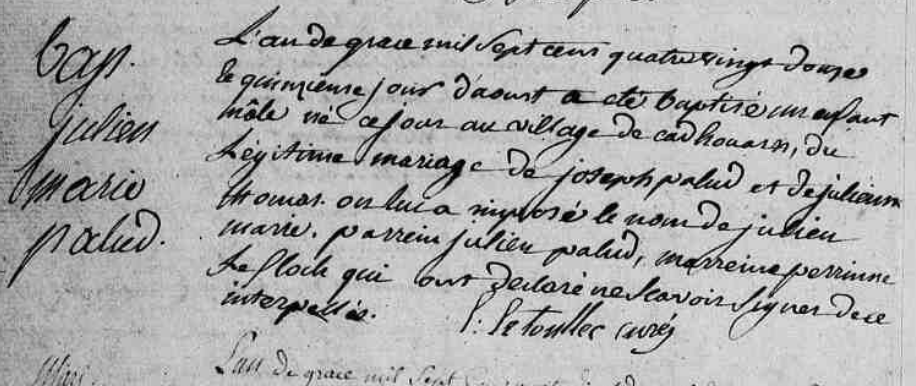 Bap.
julien
marie
palud.
L'an de grace mil Sept cent quatre vingt douze
Le quinzieme jour d'aoust a eté baptisé un enfant
mâle né ce jour au village de cadhouarn, du
Légitime mariage de joseph palud et de julienne
thomas. on lui a imposé le nom de julien
marie. parrein julien palud, marreine perrinne
Le floch qui ont declaré ne Scavoir Signer de ce
interpellés.
Le toullec curé
L'an de grace mil Sept